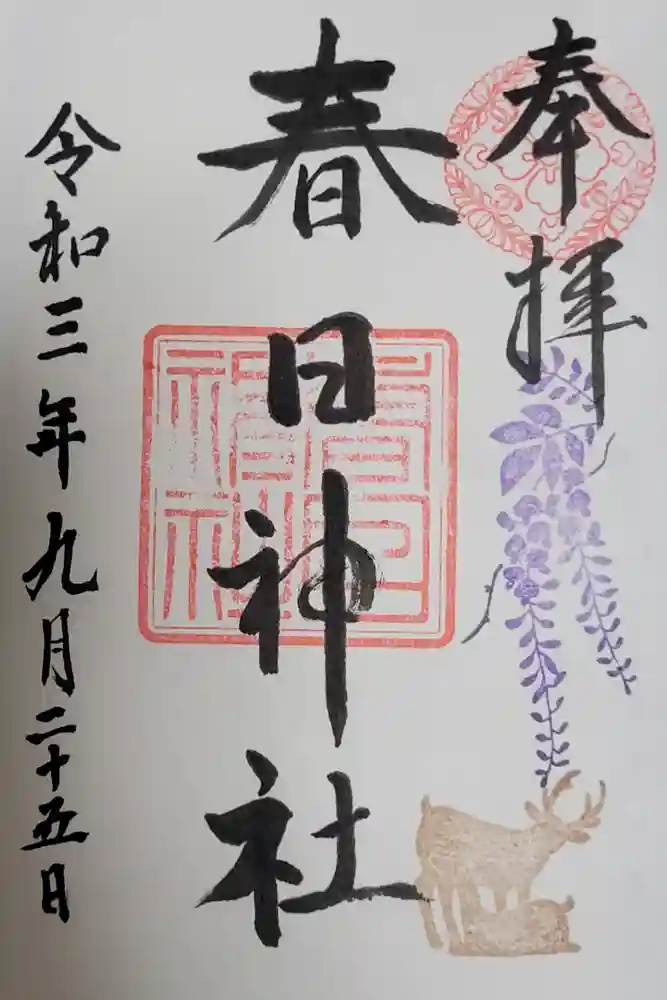 奉拝
春日神社
春日神社
令和三年九月二十五日